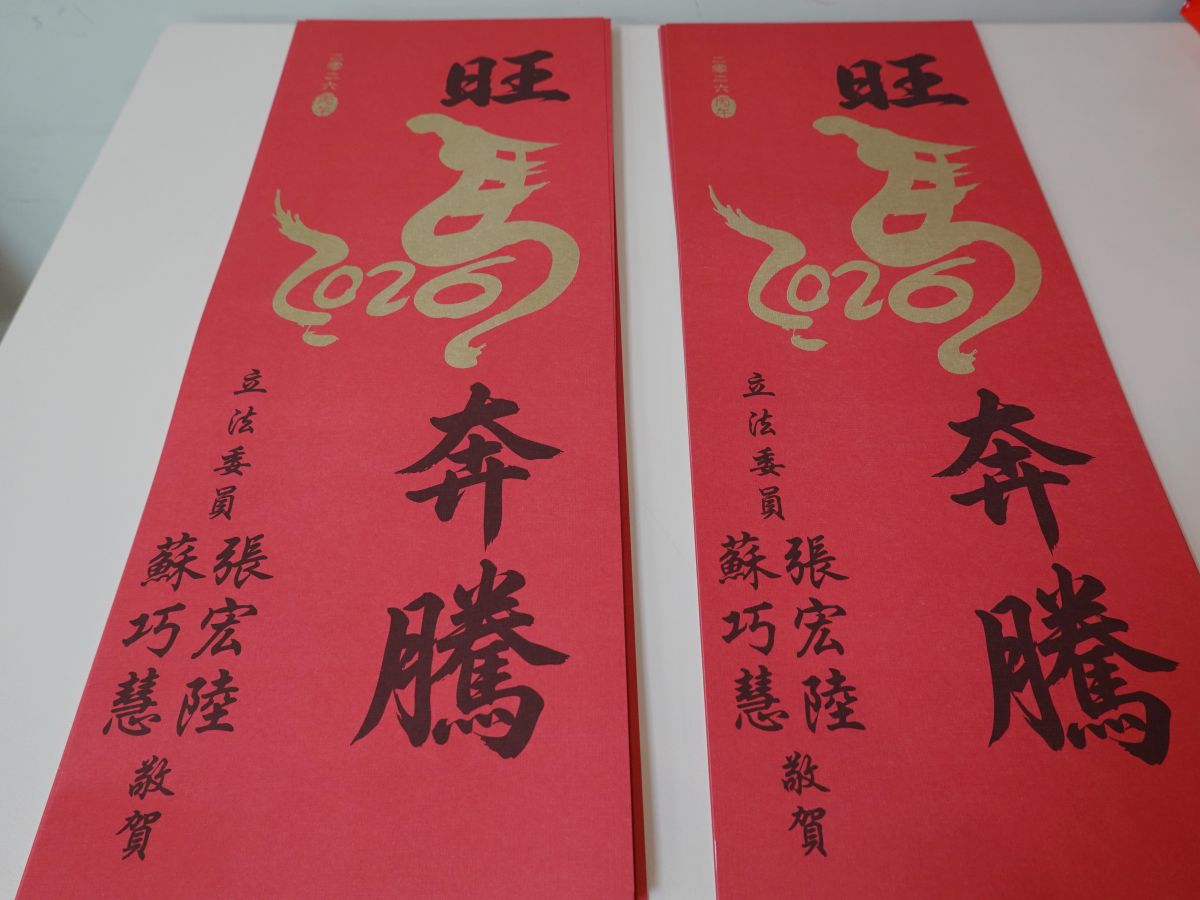 旺馬奔騰
2026
二零二六 丙午
立法委員
張宏陸
蘇巧慧
敬賀
旺馬奔騰
2026
二零二六 丙午
立法委員
張宏陸
蘇巧慧
敬賀